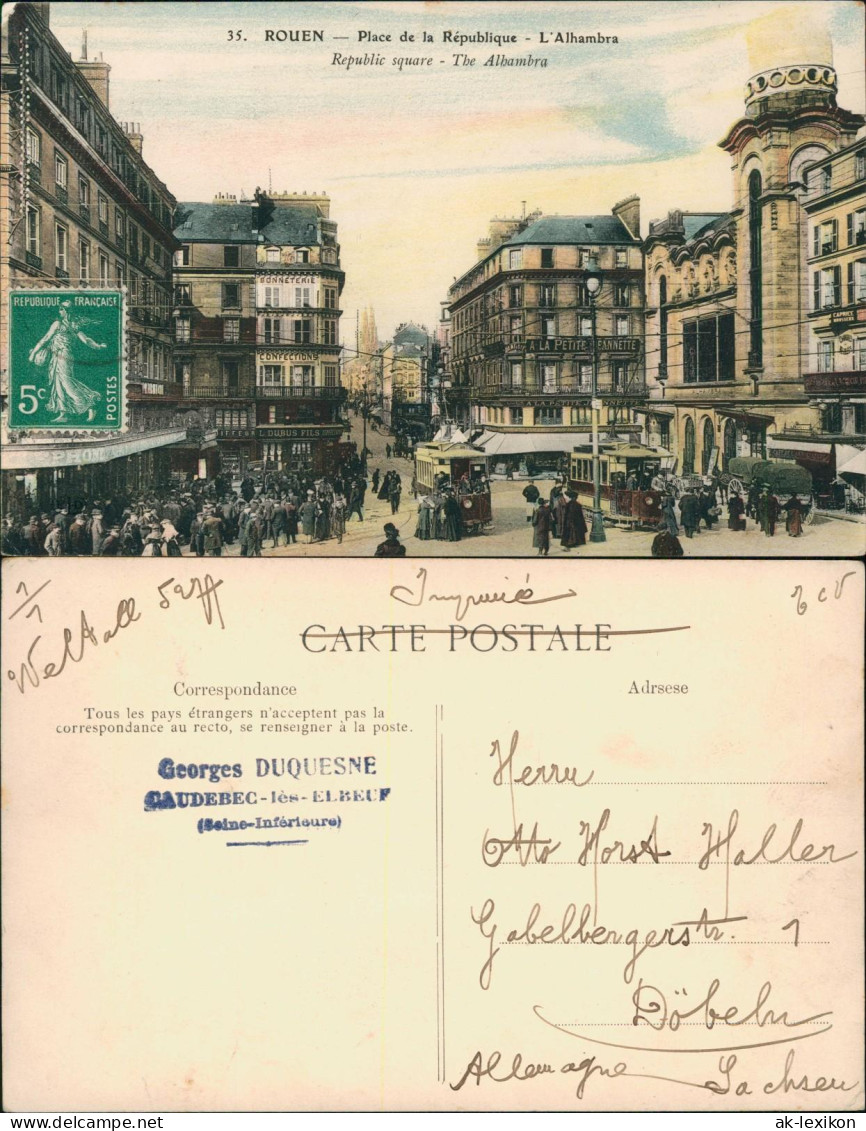 35. ROUEN — Place de la République - L'Alhambra
Republic square - The Alhambra
BONNETERIE
CONFECTIONS
L. DUBUS FILS
A LA PETITE JEANNETTE
CAPRICE
REPUBLIQUE FRANÇAISE
5c
POSTES
1/1
Weltall
Imprimé
CARTE POSTALE
Correspondance
Tous les pays étrangers n'acceptent pas la
correspondance au recto, se renseigner à la poste.
Georges DUQUESNE
CAUDEBEC-lès-ELBEUF
(Seine-Inférieure)
Adrsese
Herrn
Otto Horst Haller
Gabelbergerstr. 1
Döbeln
Allemagne Sachsen
ak-lexikon